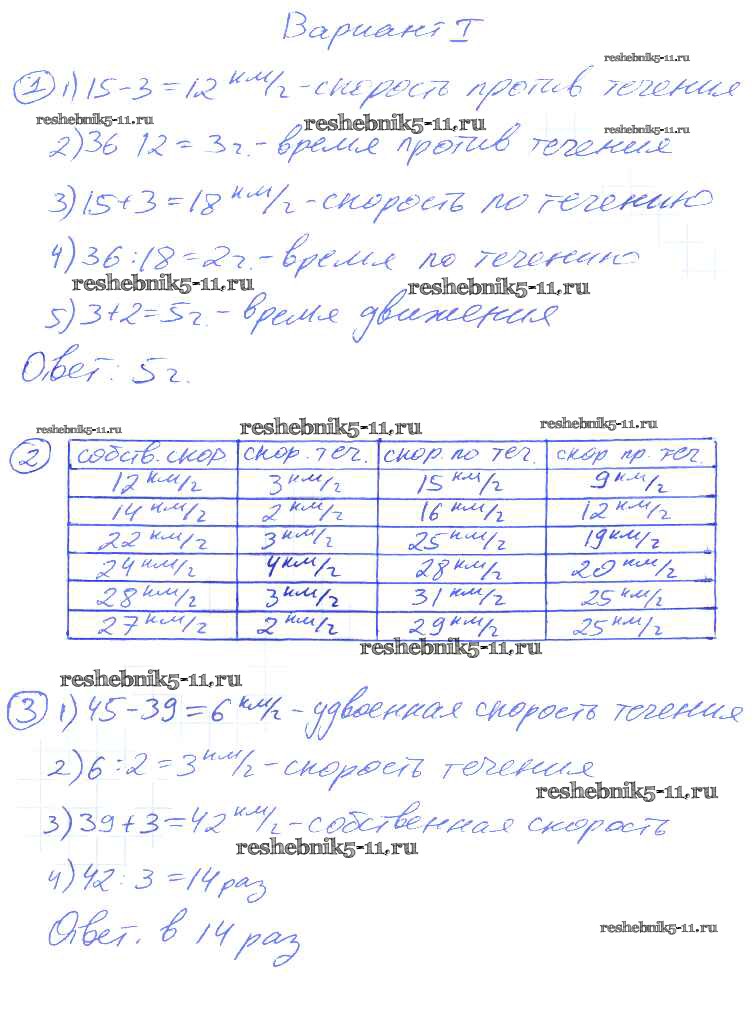 Вариант I
reshebnik5-11.ru
1 1) 15-3=12 км/ч - скорость против течения
reshebnik5-11.ru reshebnik5-11.ru reshebnik5-11.ru
2) 36 12 = 3ч. - время против течения
3) 15+3=18 км/ч - скорость по течению
4) 36:18=2ч. - время по течению
reshebnik5-11.ru reshebnik5-11.ru
5) 3+2=5ч. - время движения
Ответ: 5ч.
reshebnik5-11.ru reshebnik5-11.ru reshebnik5-11.ru
2 собств. скор скор. теч. скор. по теч. скор пр. теч.
12 км/ч 3 км/ч 15 км/ч 9 км/ч
14 км/ч 2 км/ч 16 км/ч 12 км/ч
22 км/ч 3 км/ч 25 км/ч 19 км/ч
24 км/ч 4 км/ч 28 км/ч 20 км/ч
28 км/ч 3 км/ч 31 км/ч 25 км/ч
27 км/ч 2 км/ч 29 км/ч 25 км/ч
reshebnik5-11.ru
reshebnik5-11.ru
3 1) 45-39=6 км/ч - удвоенная скорость течения
2) 6:2=3 км/ч - скорость течения
reshebnik5-11.ru
3) 39+3=42 км/ч - собственная скорость
reshebnik5-11.ru
4) 42:3=14 раз
Ответ. в 14 раз
reshebnik5-11.ru